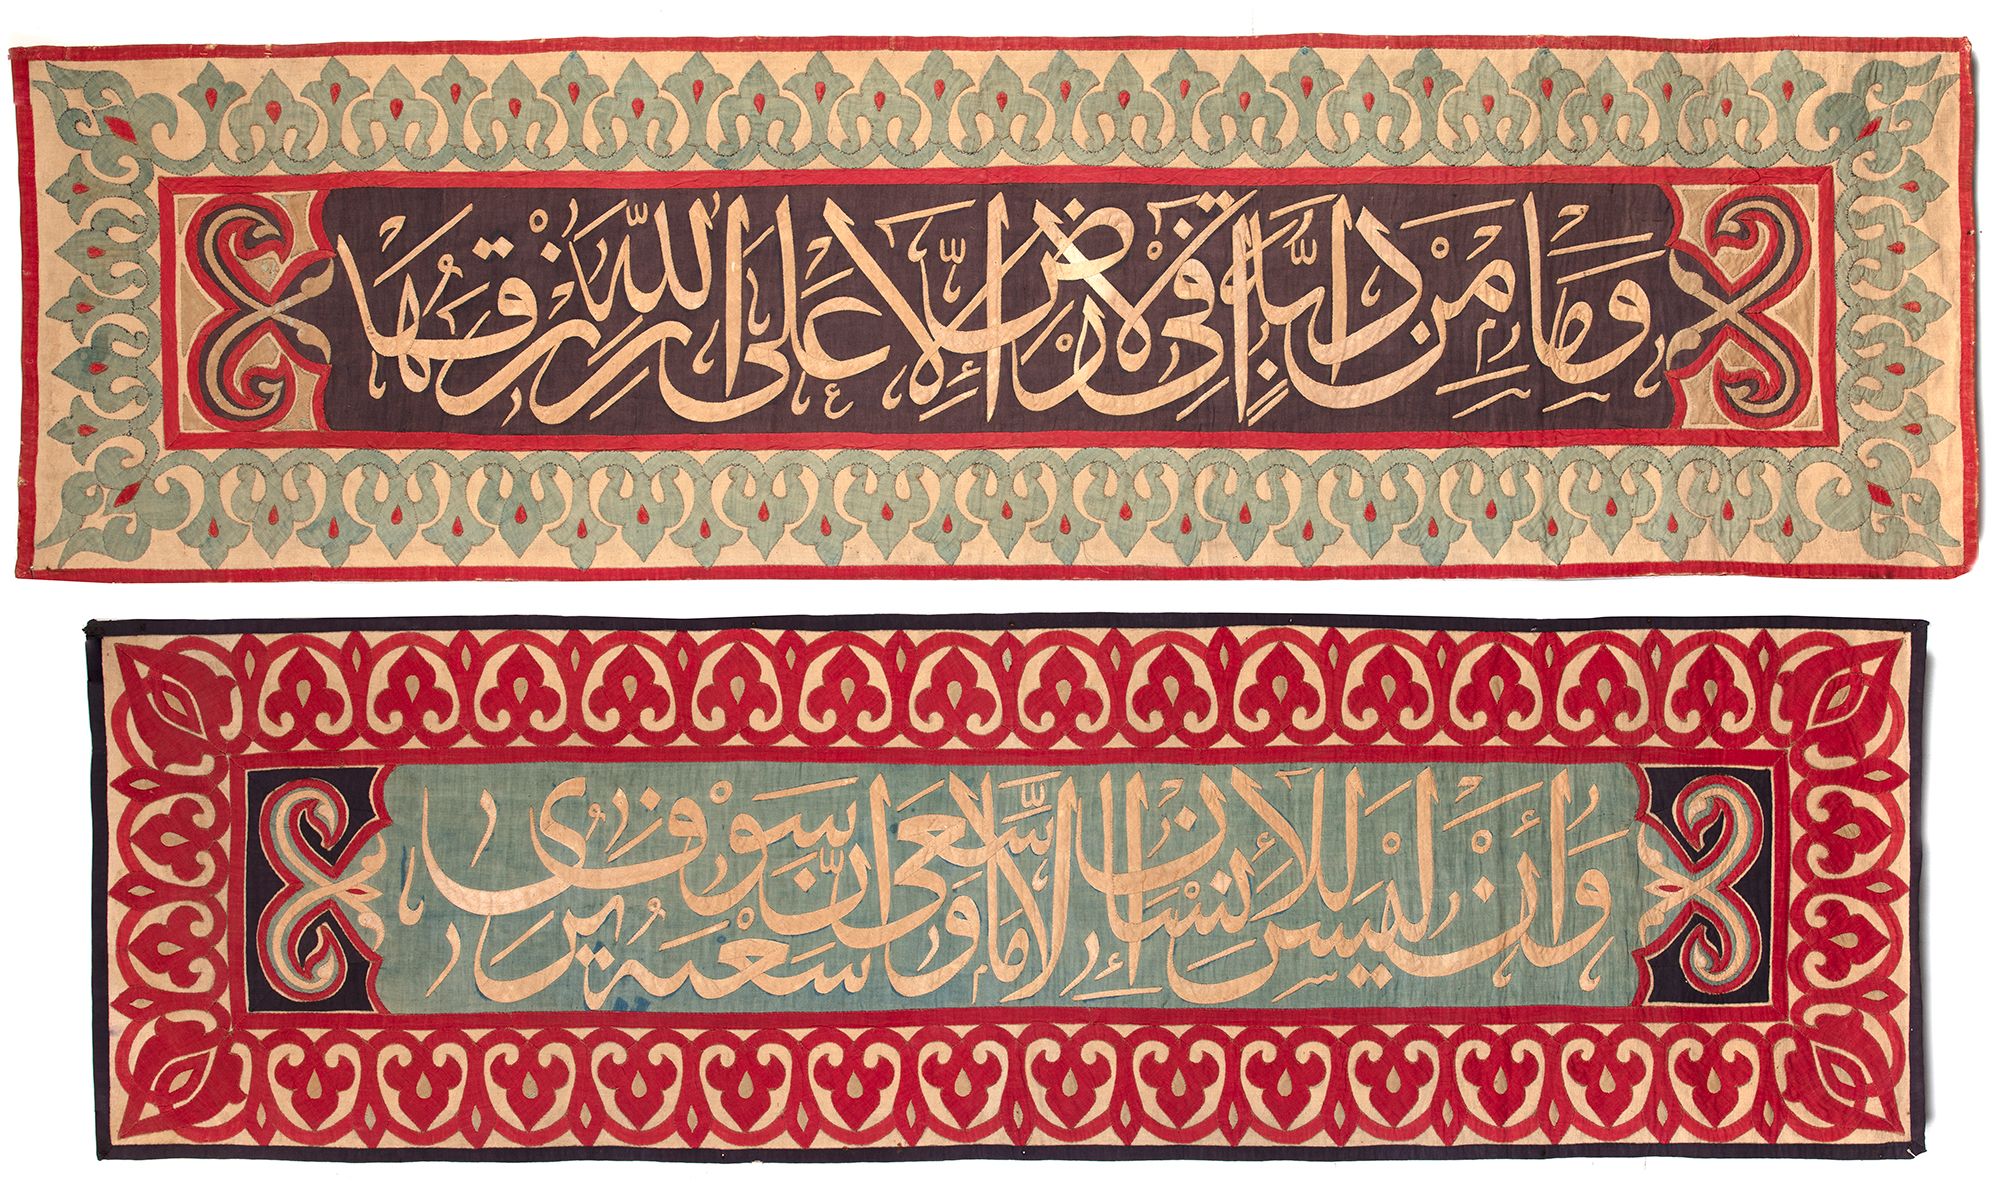 وَمَا مِنْ دَابَّةٍ فِي الْأَرْضِ إِلَّا عَلَى اللَّهِ رِزْقُهَا
وَأَنْ لَيْسَ لِلْإِنْسَانِ إِلَّا مَا سَعَى وَأَنَّ سَعْيَهُ سَوْفَ يُرَى